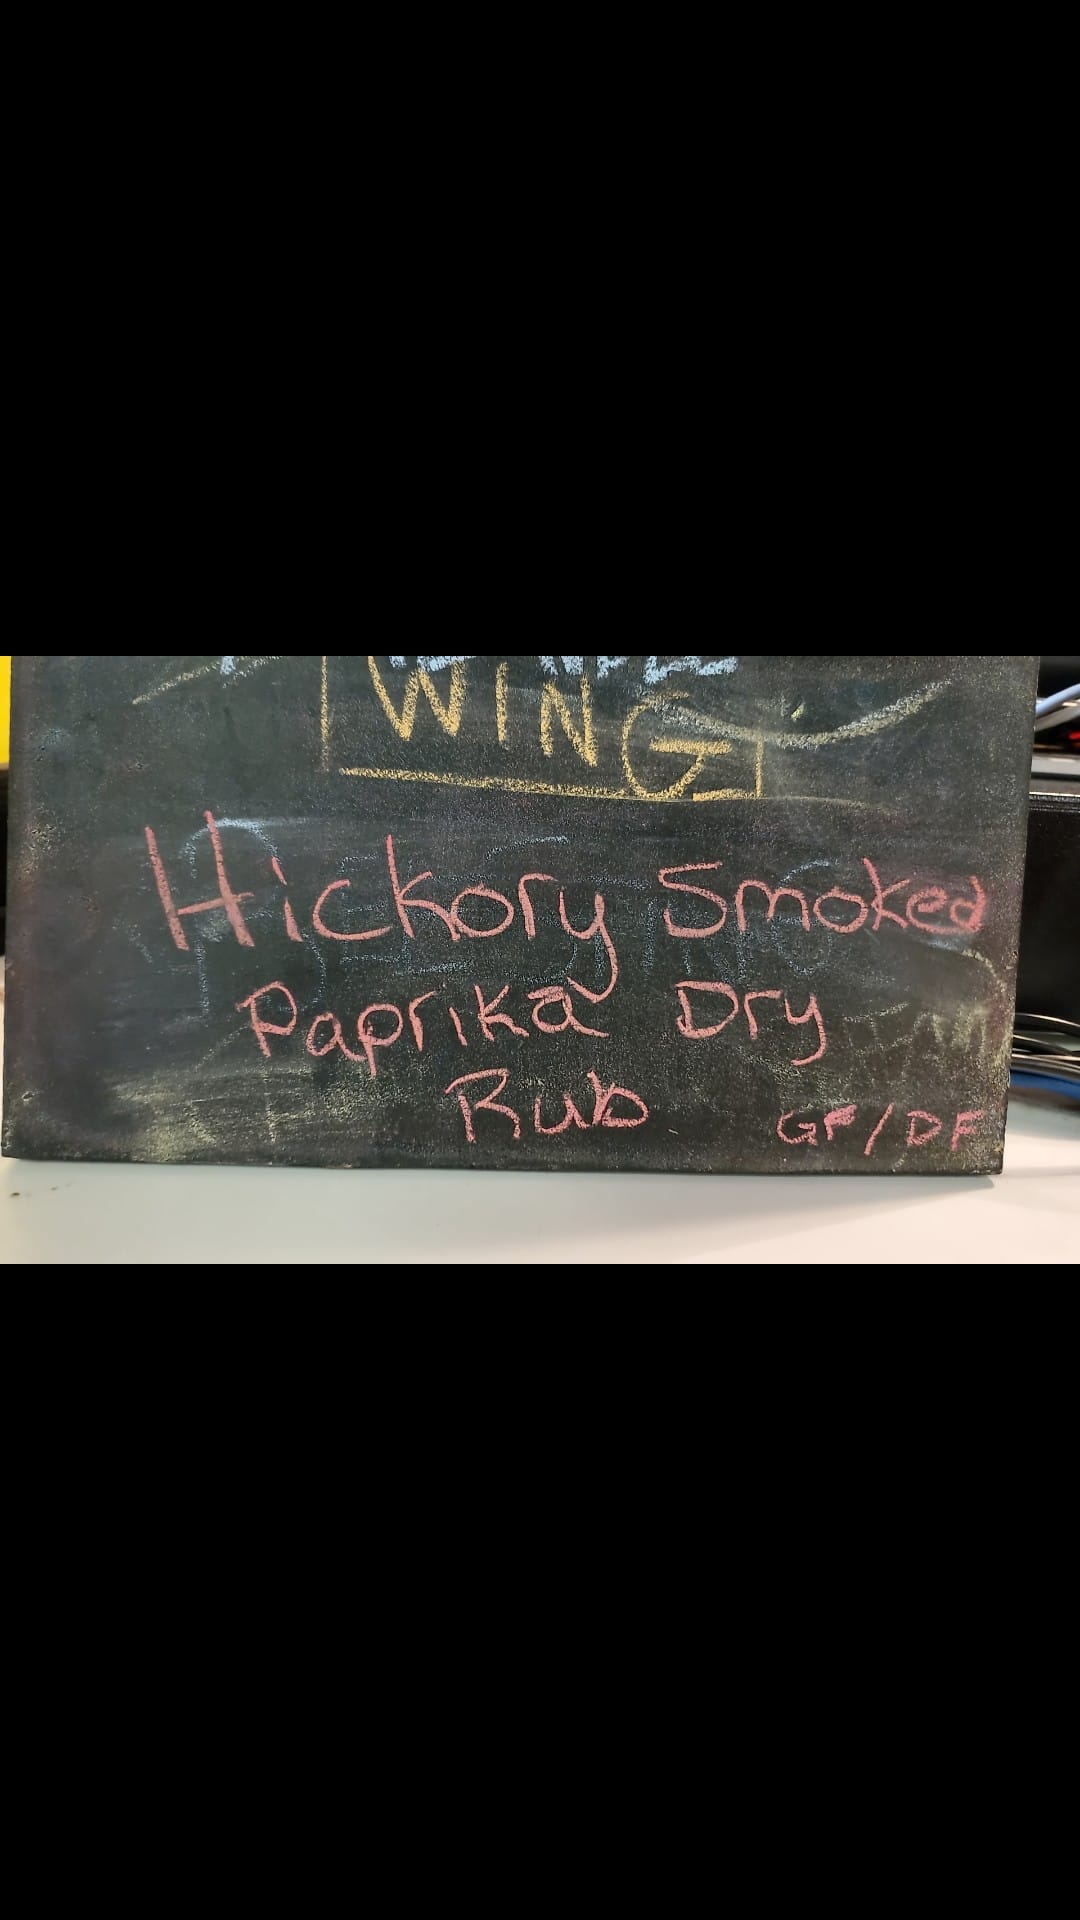 WING
Hickory Smoked
Paprika Dry
Rub
GF/DF